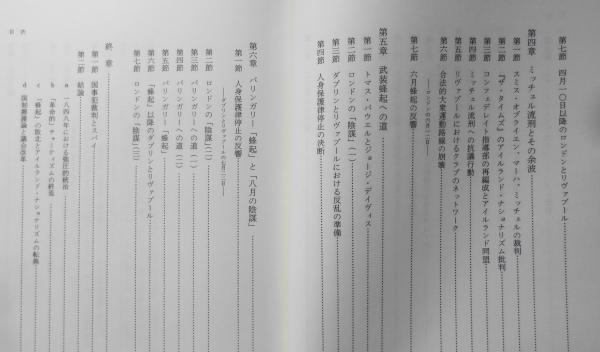 第七節 四月一〇日以降のロンドンとリヴァプール
第四章 ミッチェル流刑とその余波
第一節 スミス・オブライエン、マーハ、ミッチェルの裁判
第二節 『ザ・タイムズ』のアイルランド・ナショナリズム批判
第三節 コンフェデレイト指導部の再編成とアイルランド同盟
第四節 ミッチェル流刑への抗議行動
第五節 リヴァプールにおけるクラブのネットワーク
第六節 合法的大衆運動路線の崩壊
――ロンドンの六月一二日――
第七節 六月蜂起の反響
第五章 武装蜂起への道
第一節 トマス・パウエルとジョージ・デイヴィス
第二節 ロンドンの「陰謀」(一)
第三節 ダブリンとリヴァプールにおける反乱の準備
第四節 人身保護律停止の決断
第六章 バリンガリー「蜂起」と「八月の陰謀」
第一節 人身保護律停止の反響
第二節 ロンドンの「陰謀」(二)
第三節 バリンガリーへの道(一)
第四節 バリンガリーへの道(二)
第五節 バリンガリー「蜂起」
第六節 「蜂起」以降のダブリンとリヴァプール
第七節 ロンドンの「陰謀」(三)
終章
第一節 国事犯裁判とスパイ
第二節 結論
a 一八四八年における強圧的統治
b 「革命的」チャーティズムの終焉
c 「蜂起」の敗北とアイルランド・ナショナリズムの転換
目次